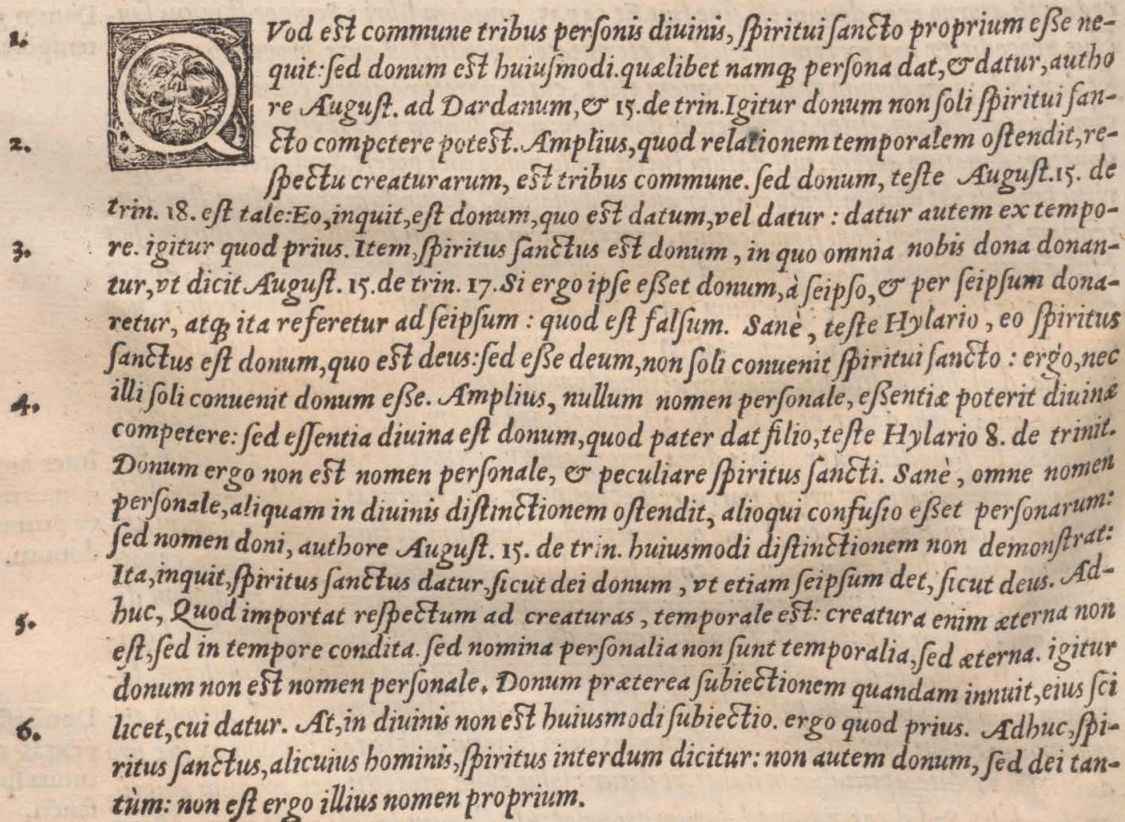 1. QVod est commune tribus personis diuinis, spiritui sancto proprium esse ne-
quit: sed donum est huiusmodi. quælibet namq; persona dat, & datur, autho
re August. ad Dardanum, & 15. de trin. Igitur donum non soli spiritui san-
2. cto competere potest. Amplius, quod relationem temporalem ostendit, re-
spectu creaturarum, est tribus commune. sed donum, teste August. 15. de
trin. 18. est tale: Eo, inquit, est donum, quo est datum, vel datur : datur autem ex tempo-
3. re. igitur quod prius. Item, spiritus sanctus est donum, in quo omnia nobis dona donan-
tur, vt dicit August. 15. de trin. 17. Si ergo ipse esset donum, à seipso, & per seipsum dona-
retur, atq; ita referetur ad seipsum : quod est falsum. Sanè, teste Hylario, eo spiritus
sanctus est donum, quo est deus: sed esse deum, non soli conuenit spiritui sancto : ergo, nec
4. illi soli conuenit donum esse. Amplius, nullum nomen personale, essentiæ poterit diuinæ
competere: sed essentia diuina est donum, quod pater dat filio, teste Hylario 8. de trinit.
Donum ergo non est nomen personale, & peculiare spiritus sancti. Sanè, omne nomen
personale, aliquam in diuinis distinctionem ostendit, alioqui confusio esset personarum:
sed nomen doni, authore August. 15. de trin. huiusmodi distinctionem non demonstrat:
Ita, inquit, spiritus sanctus datur, sicut dei donum, vt etiam seipsum det, sicut deus. Ad-
5. huc, Quod importat respectum ad creaturas, temporale est: creatura enim æterna non
est, sed in tempore condita. sed nomina personalia non sunt temporalia, sed æterna. igitur
donum non est nomen personale. Donum præterea subiectionem quandam innuit, eius sci
6. licet, cui datur. At, in diuinis non est huiusmodi subiectio. ergo quod prius. Adhuc, spi-
ritus sanctus, alicuius hominis, spiritus interdum dicitur: non autem donum, sed dei tan-
tùm: non est ergo illius nomen proprium.